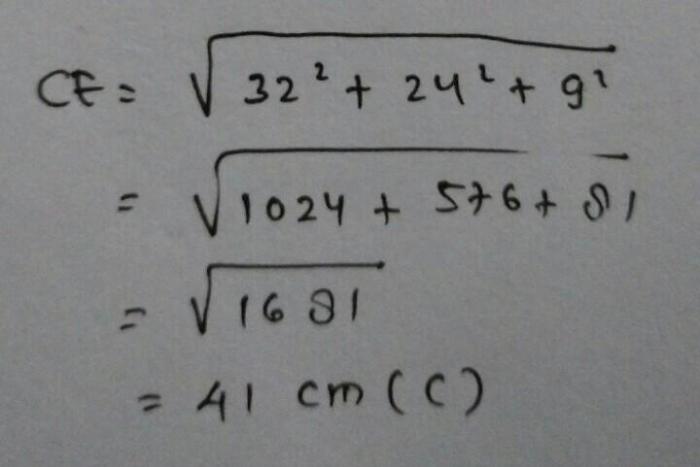 CE = √32² + 24² + 9²
= √1024 + 576 + 81
= √1681
= 41 cm (C)